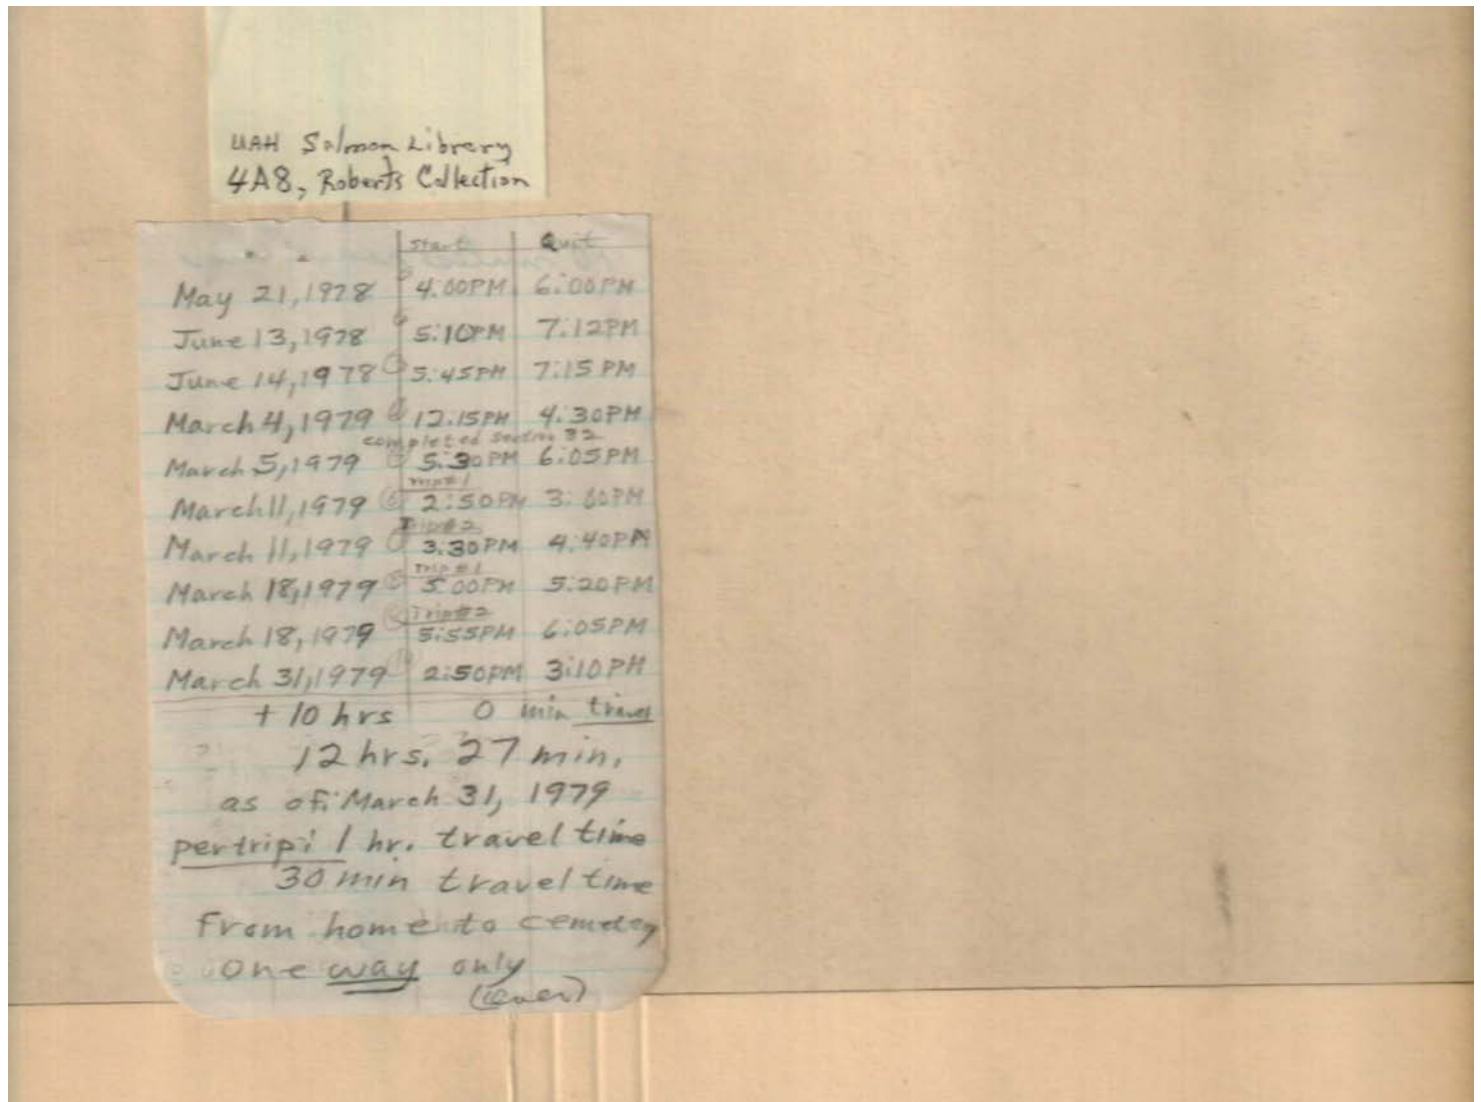 UAH Salmon Library
4A8, Roberts Collection
Start Quit
May 21, 1978 4:00PM 6:00PM
June 13, 1978 5:10PM 7:12PM
June 14, 1978 5:45PM 7:15PM
March 4, 1979 12:15PM 4:30PM
completed section 32
March 5, 1979 5:30PM 6:05PM
Trip #1
March 11, 1979 2:50PM 3:00PM
Trip #2
March 11, 1979 3:30PM 4:40PM
Trip #1
March 18, 1979 5:00PM 5:20PM
Trip #2
March 18, 1979 5:55PM 6:05PM
March 31, 1979 2:50PM 3:10PM
+ 10 hrs 0 min travel
12 hrs. 27 min.
as of: March 31, 1979
per trip: 1 hr. travel time
30 min travel time
from home to cemetery
one way only
(over)